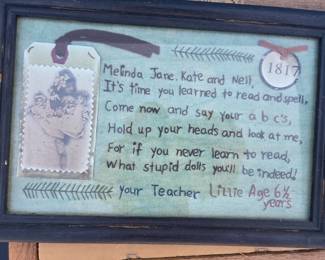 1817
Melinda Jane, Kate and Nell,
It's time you learned to read and spell,
Come now and say your a b c's,
Hold up your heads and look at me,
For if you never learn to read,
What stupid dolls you'll be indeed!
your Teacher Lillie Age 6½
years